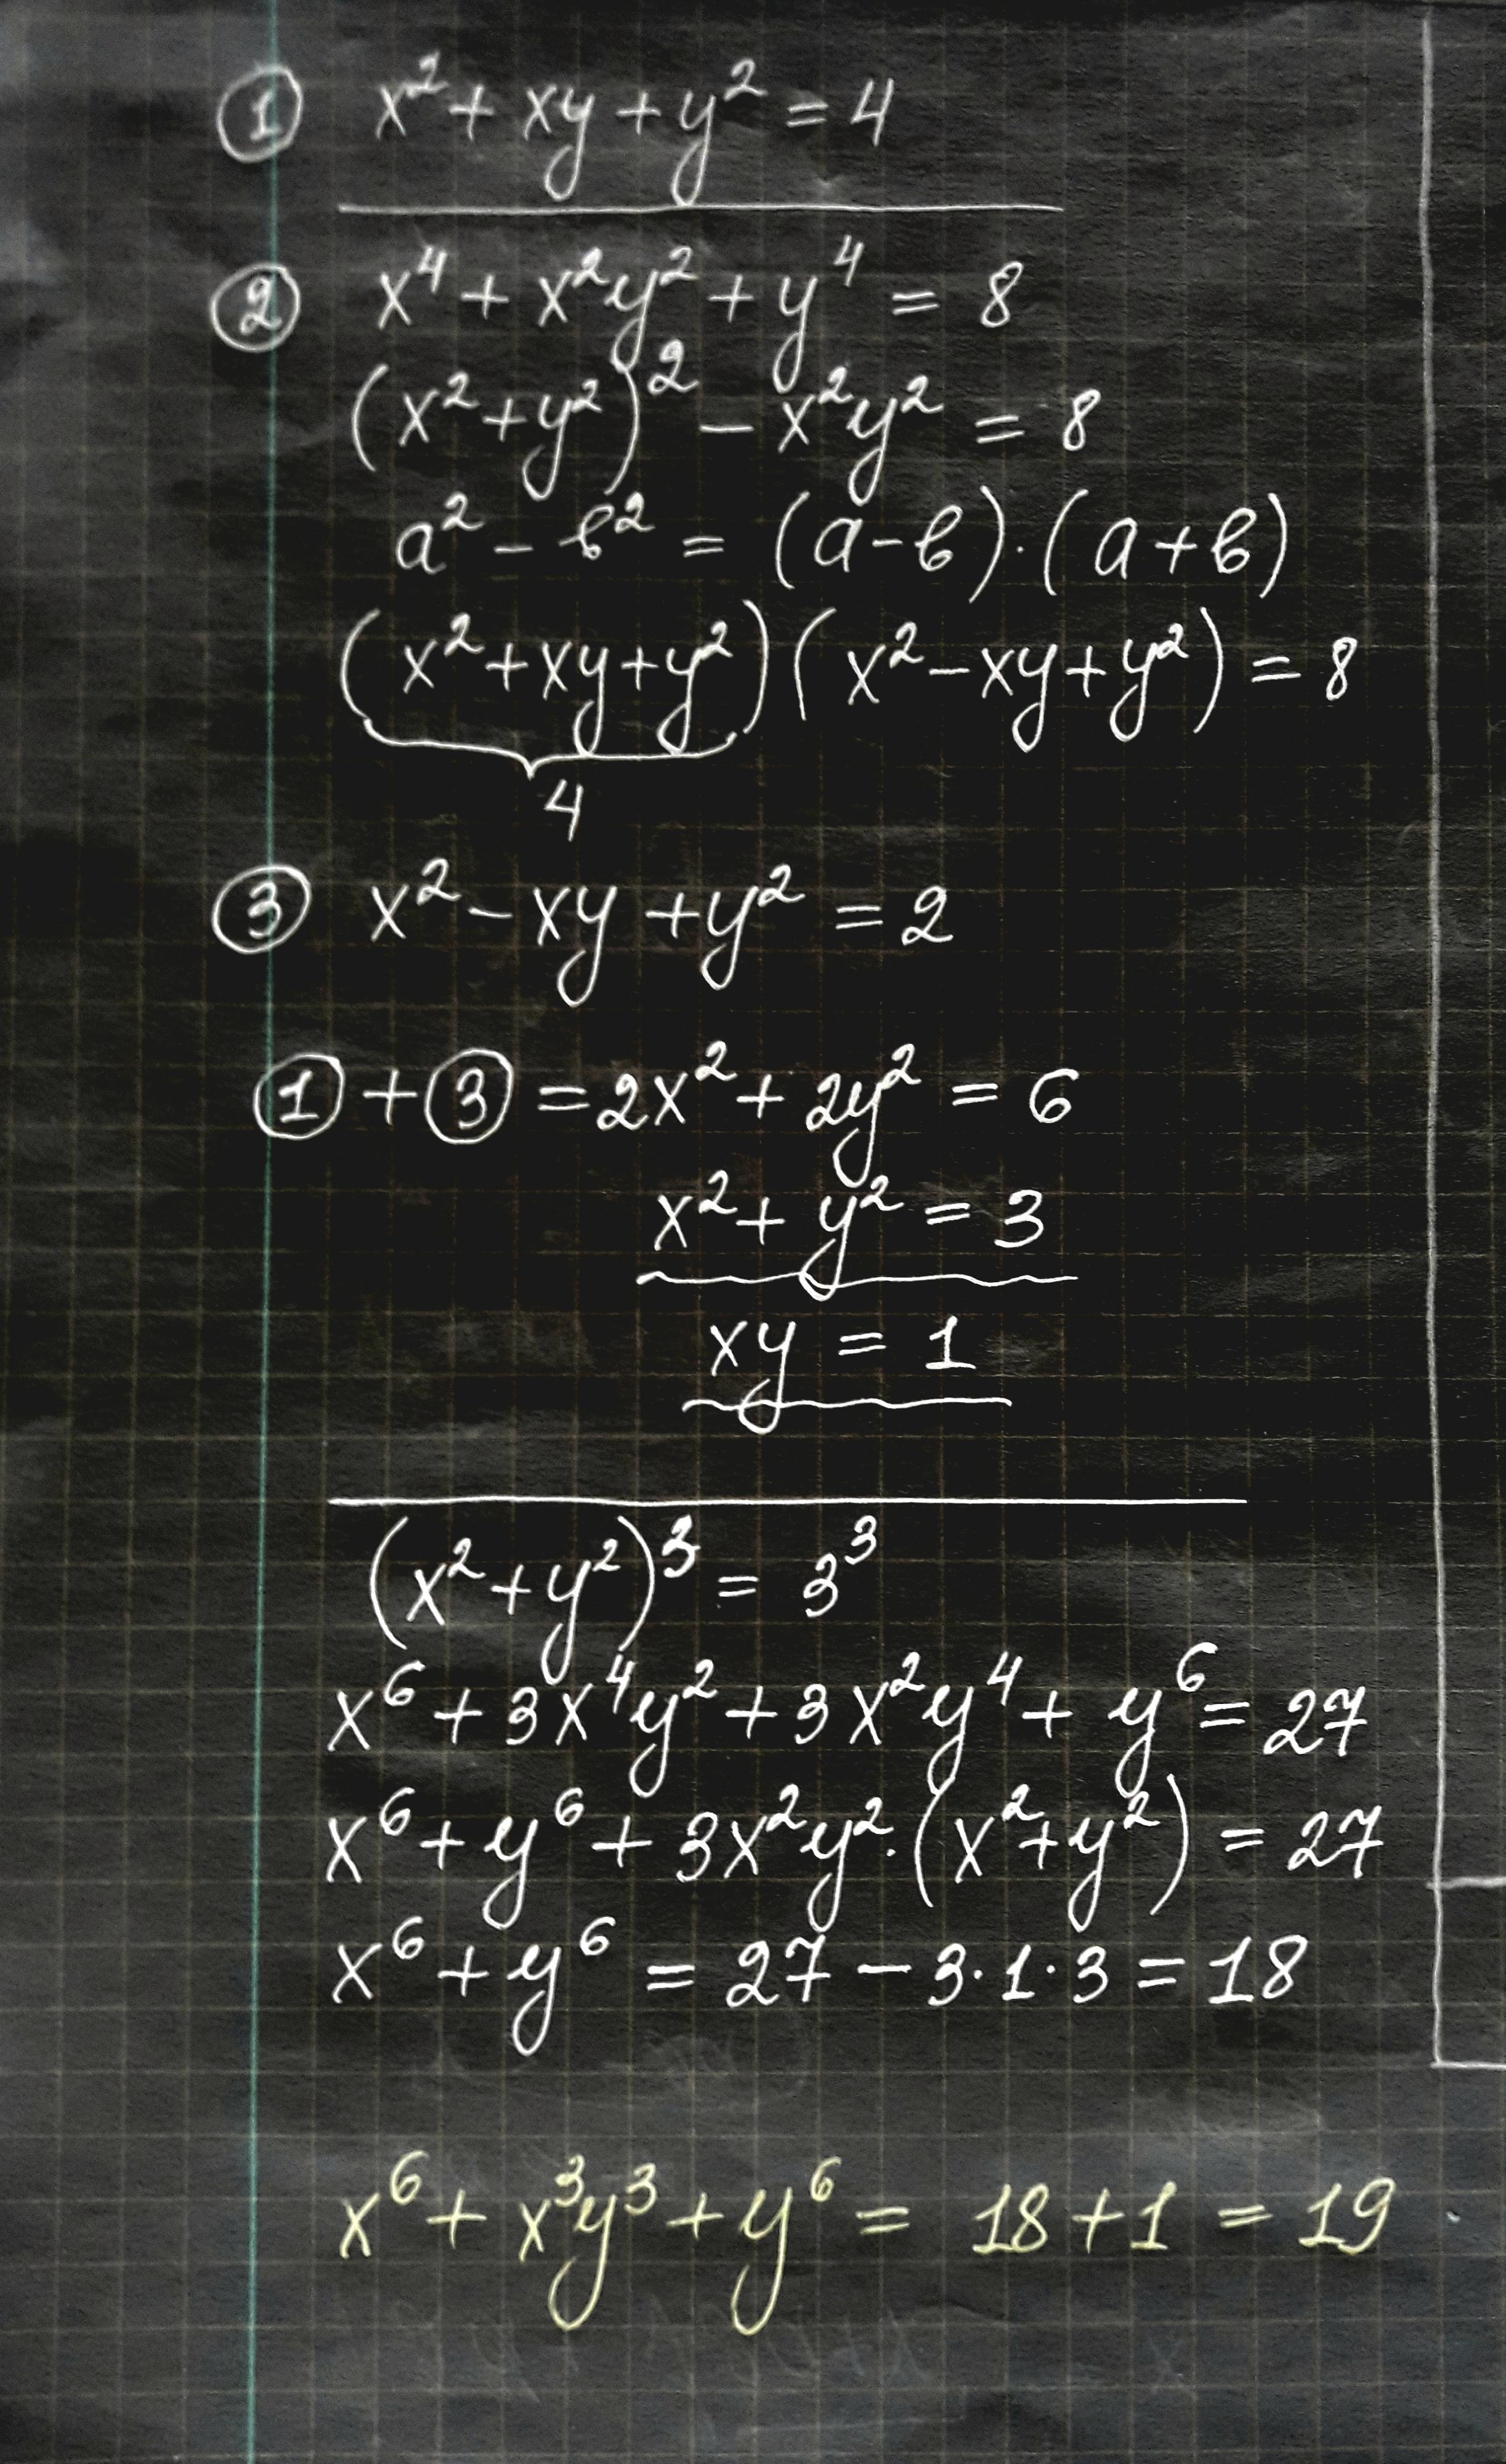 ① x² + xy + y² = 4
② x⁴ + x²y² + y⁴ = 8
(x² + y²)² − x²y² = 8
a² − в² = (a − в)·(a + в)
(x² + xy + y²)(x² − xy + y²) = 8
4
③ x² − xy + y² = 2
① + ③ = 2x² + 2y² = 6
x² + y² = 3
xy = 1
(x² + y²)³ = 3³
x⁶ + 3x⁴y² + 3x²y⁴ + y⁶ = 27
x⁶ + y⁶ + 3x²y²·(x² + y²) = 27
x⁶ + y⁶ = 27 − 3·1·3 = 18
x⁶ + x³y³ + y⁶ = 18 + 1 = 19